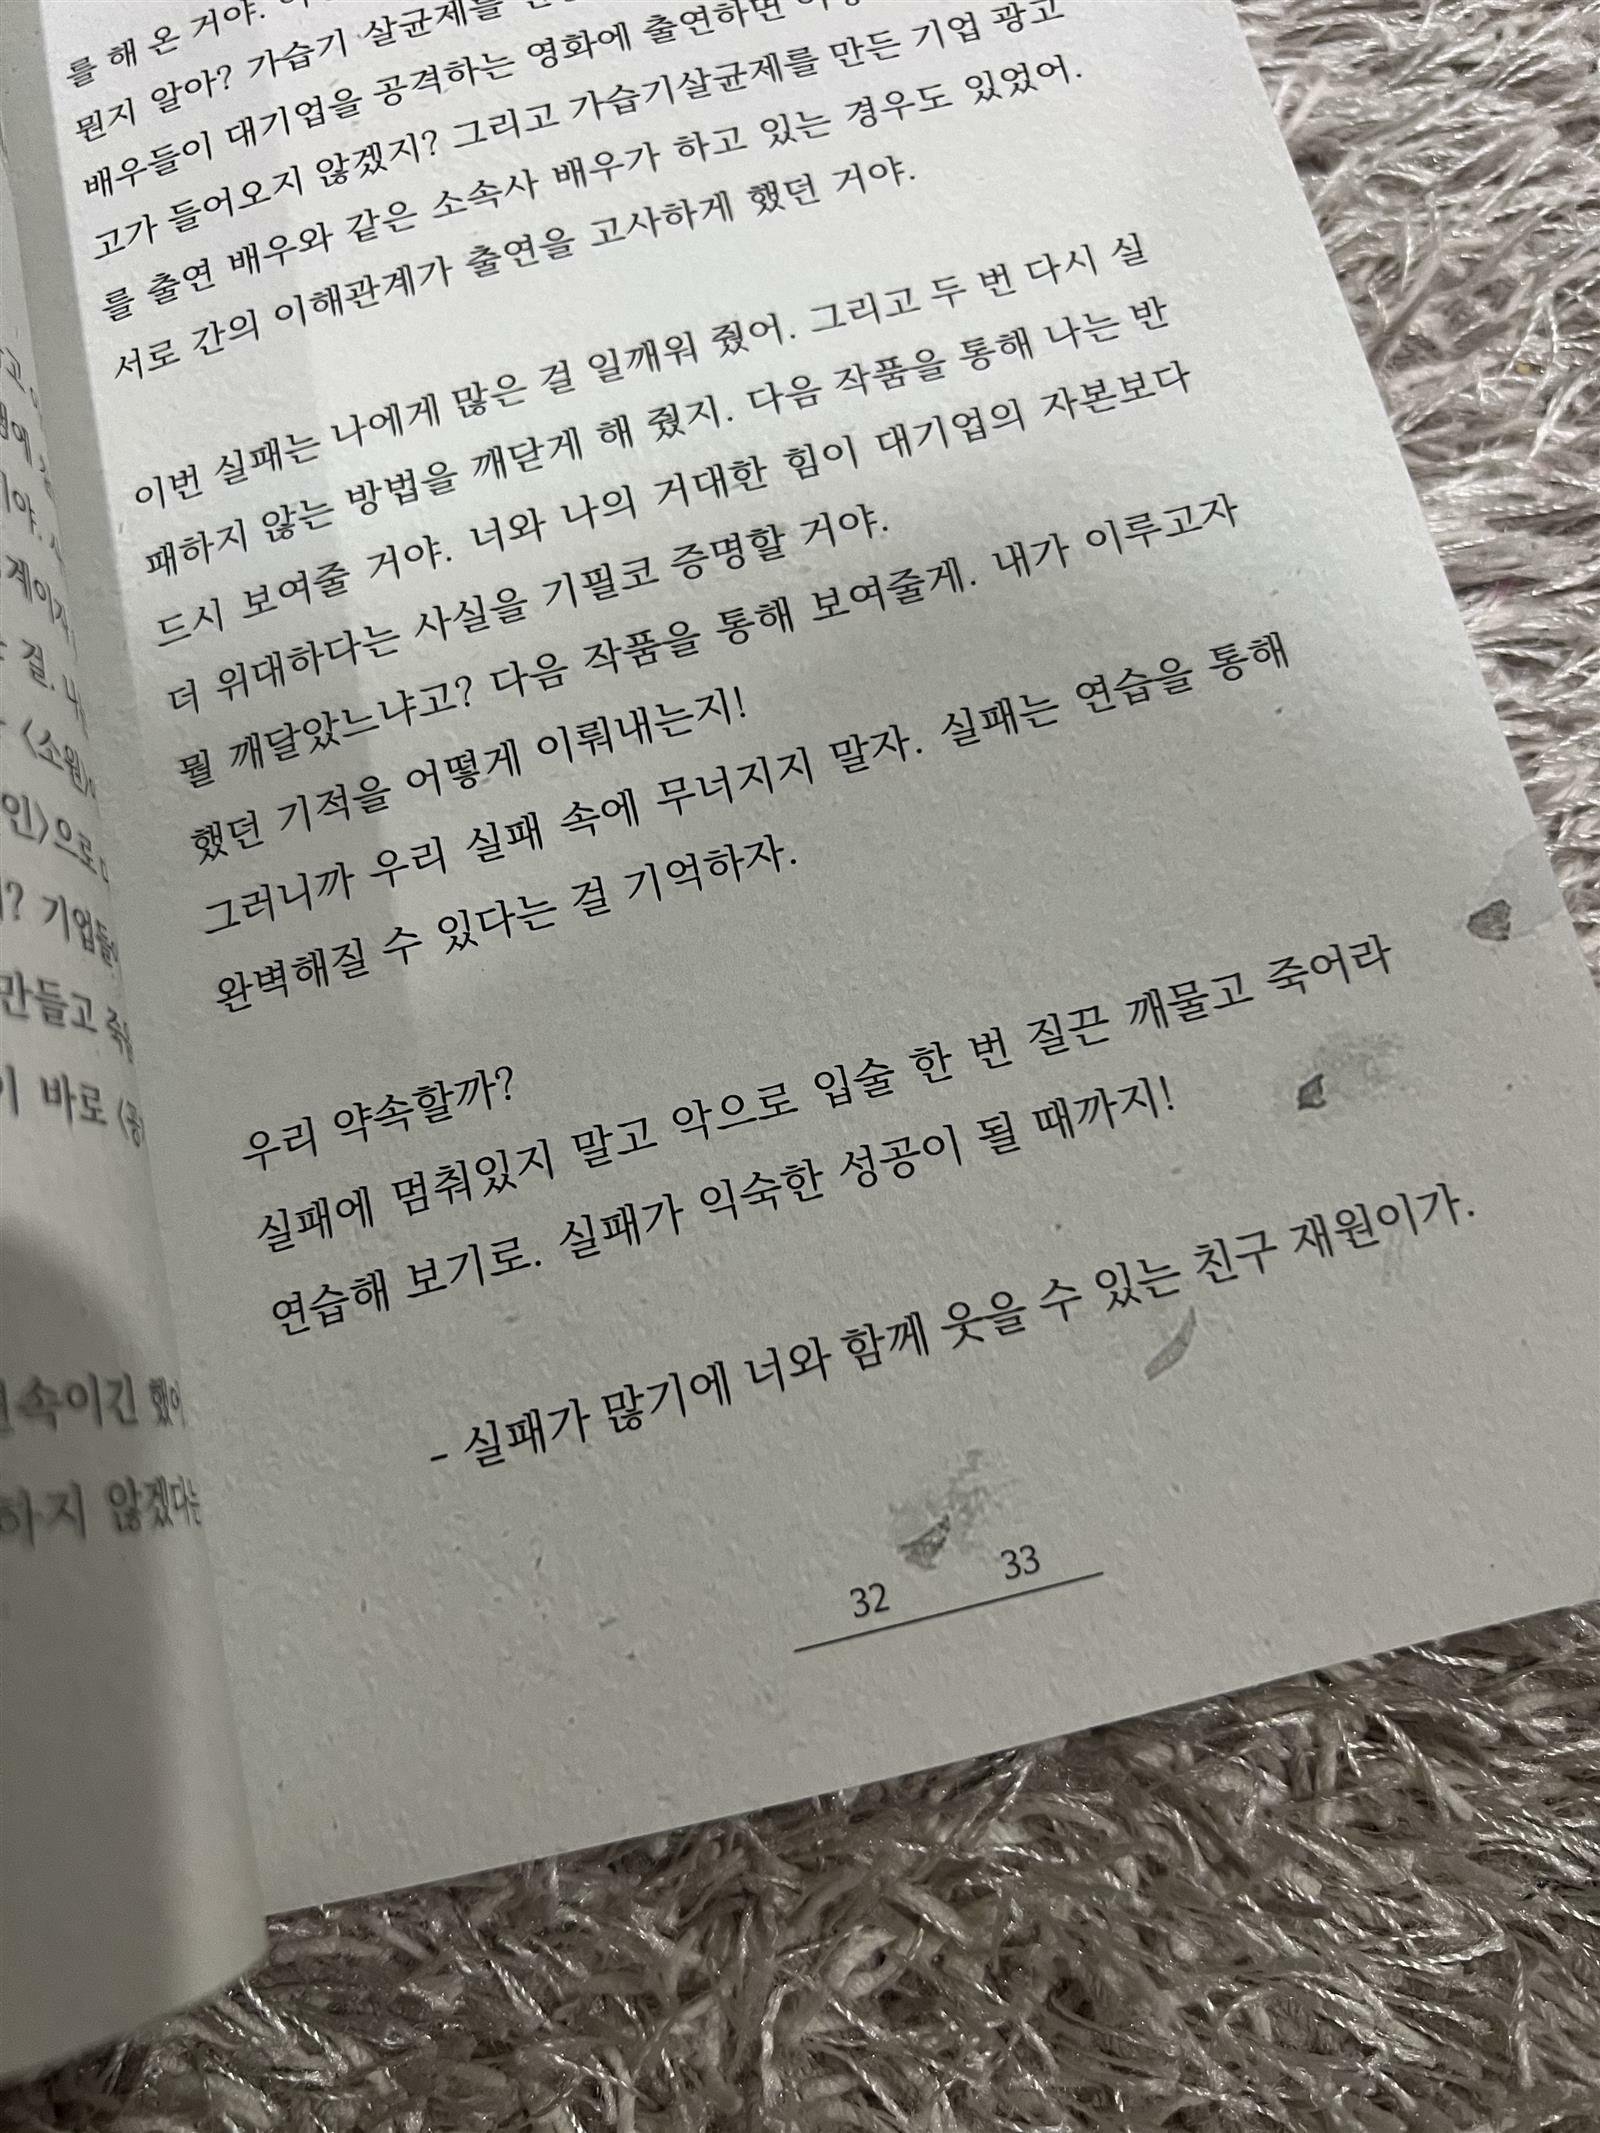 를 해 온 거야.
뭔지 알아? 가습기 살균제를
배우들이 대기업을 공격하는 영화에 출연하면
고가 들어오지 않겠지? 그리고 가습기살균제를 만든 기업 광고
를 출연 배우와 같은 소속사 배우가 하고 있는 경우도 있었어.
서로 간의 이해관계가 출연을 고사하게 했던 거야.
이번 실패는 나에게 많은 걸 일깨워 줬어. 그리고 두 번 다시 실
패하지 않는 방법을 깨닫게 해 줬지. 다음 작품을 통해 나는 반
드시 보여줄 거야. 너와 나의 거대한 힘이 대기업의 자본보다
더 위대하다는 사실을 기필코 증명할 거야.
뭘 깨달았느냐고? 다음 작품을 통해 보여줄게. 내가 이루고자
했던 기적을 어떻게 이뤄내는지!
그러니까 우리 실패 속에 무너지지 말자. 실패는 연습을 통해
완벽해질 수 있다는 걸 기억하자.
우리 약속할까?
실패에 멈춰있지 말고 악으로 입술 한 번 질끈 깨물고 죽어라
연습해 보기로. 실패가 익숙한 성공이 될 때까지!
- 실패가 많기에 너와 함께 웃을 수 있는 친구 재원이가.
32 33
걸.
<소원>
인>으로
기업들
만들고
바로
속이긴 했어
하지 않겠다는